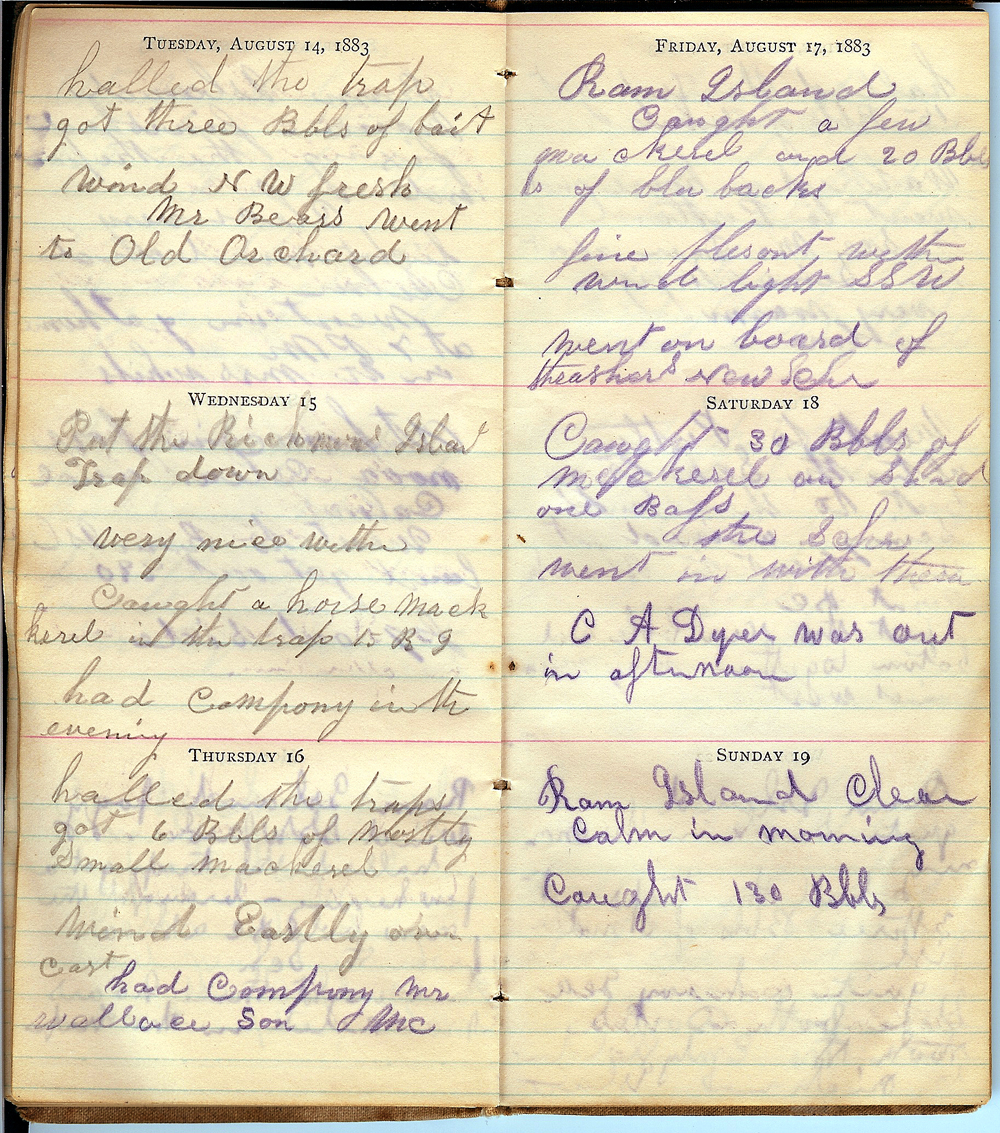 TUESDAY, AUGUST 14, 1883
halled the trap
got three Bbls of bait
wind N W fresh
Mr Bears went
to Old Orchard
WEDNESDAY 15
Put the Richmond Islan
Trap down
very nice wethe
Caught a horse Mack
kerel in the trap
had Compony in th
evening
THURSDAY 16
halled the traps
got 6 Bbls of mostly
Small mackerel
wind Eastly over
Cast
had Compony Mr
wallace Son Mc
FRIDAY, AUGUST 17, 1883
Ram Island
Caught a few
mackerel and 20 Bbls
of blu backs
fine plesont wethe
wind light SSW
went on board of
thrashers New Schr
SATURDAY 18
Caught 30 Bbls of
mackerel
one Bass
the Schr
went in with them
C A Dyer was out
in afternoon
SUNDAY 19
Ram Island Clear
Calm in morning
Caught 130 Bbls